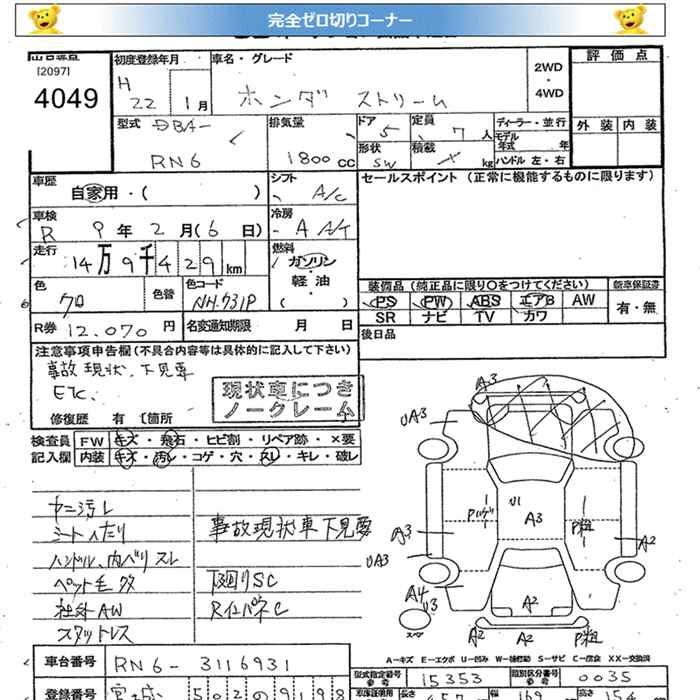 完全ゼロ切りコーナー
[2097]
4049
初度登録年月
H 22 1月
車名・グレード
ホンダ ストリーム
2WD
・
4WD
評価点
外装 内装
型式 DBA-
RN6
排気量
1800cc
ドア 5
形状 SW
定員 7人
積載 kg
ディーラー・並行
モデル年式 年
ハンドル 左・右
車歴
自家用・( )
シフト A/C
冷房 A A/T
セールスポイント (正常に機能するものに限ります)
車検
R 9年 2月(6日)
走行
14万9千429km
燃料
ガソリン
軽・油
( )
色 クロ
色替
色コード NH-731P
装備品 (純正品に限り○をつけてください)
新車保証書
PS PW ABS エアB AW
SR ナビ TV カワ
有・無
R券 12,070円
名変通知期限 月 日
後日品
注意事項申告欄(不具合内容等は具体的に記入して下さい)
事故現状、下見要
ETC.
現状車につき
ノークレーム
修復歴 有 〔箇所
検査員
記入欄
FW キズ・飛石・ヒビ割・リペア跡・×要
内装 キズ・汚レ・コゲ・穴・スレ・キレ・破レ
ヤニ汚レ
シートヘたり
ハンドル、内ベリスレ
ペット毛多
社外AW
スタットレス
事故現状車下見要
下回りSC
RインパネC
A3
UA3
A3
UA3
A4
U3
スペア
U1
A3
P粗
A2
A2
A2
A2
P粗
A-キズ E-エクボ U-凹み W-補修跡 S-サビ C-腐食 XX-交換済
車台番号 RN6-3116931
型式指定番号 15353
類別区分番号 0035
登録番号 宮城 502 の 9198